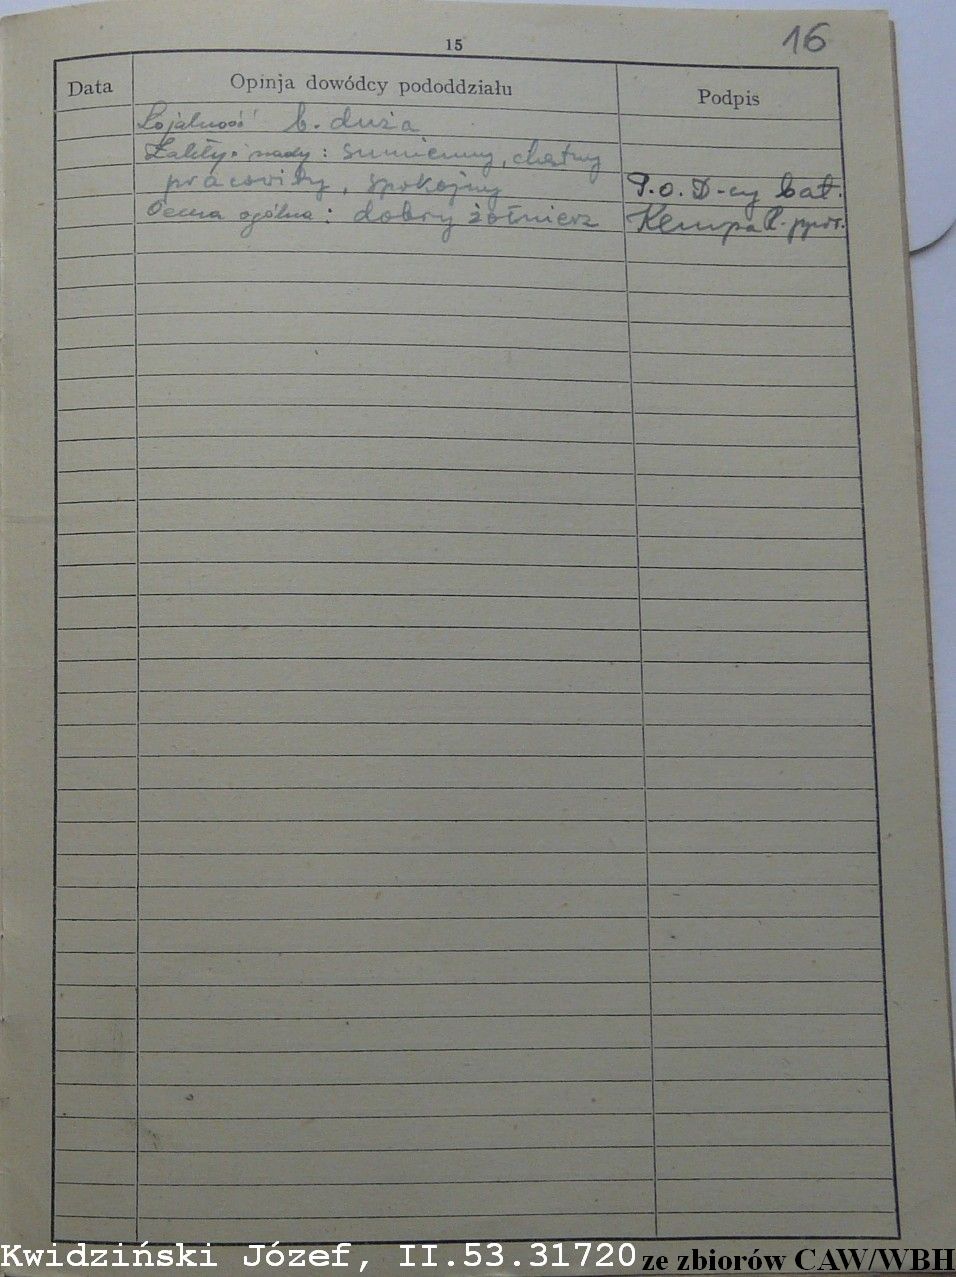 15
16
Data Opinja dowódcy pododdziału Podpis
Lojalność b. duża
Zalety i wady: sumienny, chętny
pracowity, spokojny P.o. D-cy bat.
Ocena ogólna: dobry żołnierz Kempa R. ppor.
Kwidziński Józef, II.53.31720 ze zbiorów CAW/WBH